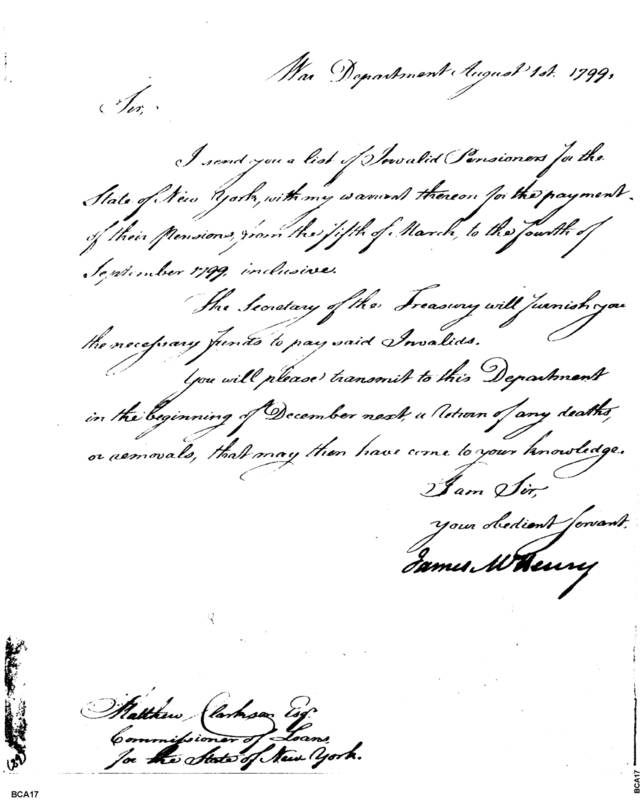 War Department August 1st. 1799.
Sir,
I send you a list of Invalid Pensioners for the
State of New York, with my warrant thereon for the payment
of their Pensions, from the fifth of March, to the fourth of
September 1799, inclusive.
The Secretary of the Treasury will furnish you
the necessary funds to pay said Invalids.
You will please transmit to this Department
in the beginning of December next, a return of any deaths,
or removals, that may then have come to your knowledge.
I am Sir,
your obedient servant.
James McHenry
Matthew Clarkson Esqr.
Commissioner of Loans,
for the State of New York.
BCA17
BCA17